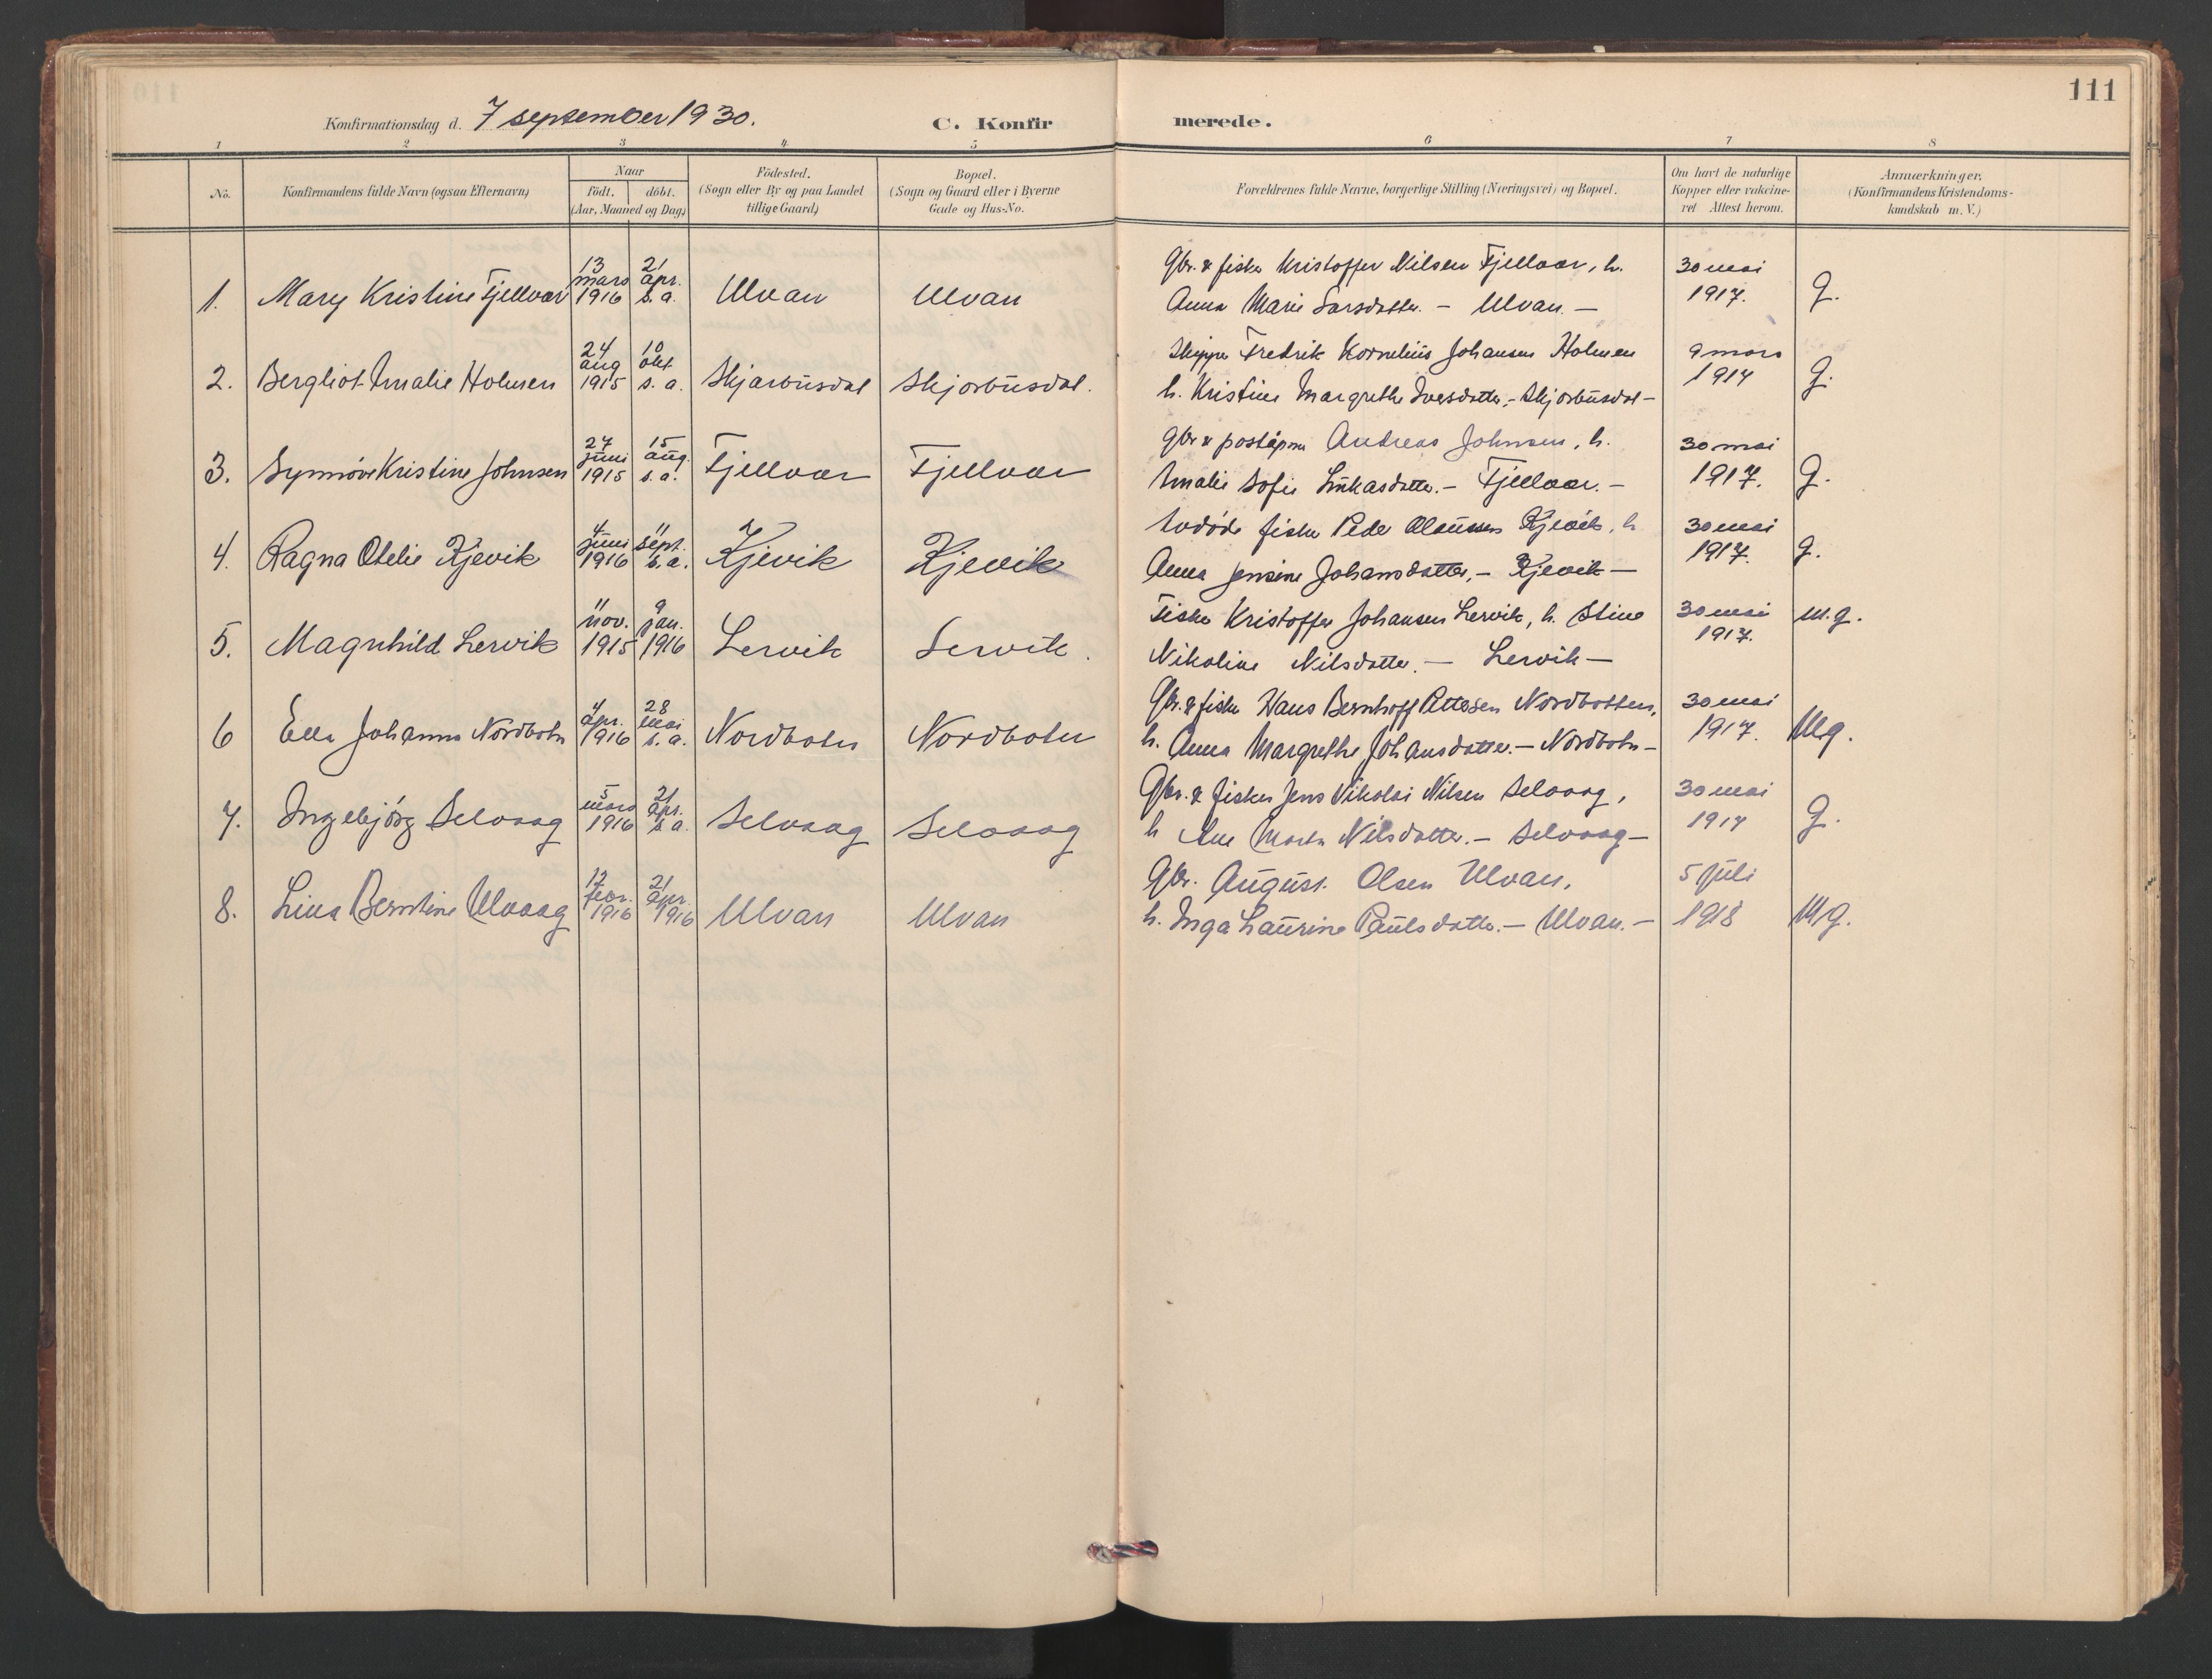 111
Konfirmationsdag d. 7 september 1930.
C. Konfirmerede.
1 2 3 4 5 6 7 8
No.
Konfirmandens fulde Navn (ogsaa Efternavn)
Naar
födt. döbt.
(Aar, Maaned og Dag)
Födested.
(Sogn eller By og paa Landet
tillige Gaard)
Bopæl.
(Sogn og Gaard eller i Byerne
Gade og Hus-No.
Forældrenes fulde Navne, borgerlige Stilling (Næringsvei) og Bopæl.
Om havt de naturlige
Kopper eller vakcine-
ret Attest herom.
Anmærkninger.
(Konfirmandens Kristendoms-
kundskab m. V.)
1. Mary Kristine Fjellvær 13 mars 1916 21 apr. s.a. Ulvan Ulvan
Gbr. & fisker Kristoffer Nilsen Fjellvær, h.
Anna Marie Larsdatter. – Ulvan. –
30 mai
1917.
g.
2. Bergliot Amalie Holmen 24 aug 1915 10 okt s.a. Skjærbusdal Skjærbusdal.
Skipper Fredrik Kornelius Johansen Holmen
h. Kristine Margrethe Iversdatter, – Skjærbusdal –
9 mars
1917
g.
3. Synnöve Kristine Johnsen 27 juni 1915 15 aug. s.a. Fjellvær Fjellvær
Gbr & poståpner Andreas Johnsen, h.
Amalie Sofie Lukasdatter. – Fjellvær. –
30 mai
1917.
g.
4. Ragna Otelie Kjevik 4 juni 1916 11 sept. s.a. Kjevik Kjevik
fisker Peder Olaussen Kjevik, h
Anna Jensine Johansdatter, – Kjevik –
30 mai
1917.
g.
5. Magnhild Lervik 11 nov. 1915 9 jan. 1916 Lervik Lervik.
Fisker Kristoffer Johansen Lervik, h. Stine
Nikoline Nilsdatter. – Lervik –
30 mai
1917.
M.g.
6 Ella Johanna Nordbotn 4 apr. 1916 28 mai s.a. Nordbotn Nordbotn
Gbr. & fisker Hans Bernhoff Pettersen Nordbotten,
h. Anna Margrethe Johansdatter. – Nordbotn –
30 mai
1917.
Mg.
7. Ingebjörg Selvaag 5 mars 1916 21 apr. s.a. Selvaag Selvaag
Gbr. & fisker Jens Nikolai Nilsen Selvaag,
h Ane Marta Nilsdatter. – Selvaag –
30 mai
1917
g.
8. Lina Berntine Ulvaag 12 febr. 1916 21 apr. 1916 Ulvan Ulvan
Gbr. August Olsen Ulvan,
h. Inga Laurine Paulsdatter. – Ulvan. –
5 juli
1918
Mg.